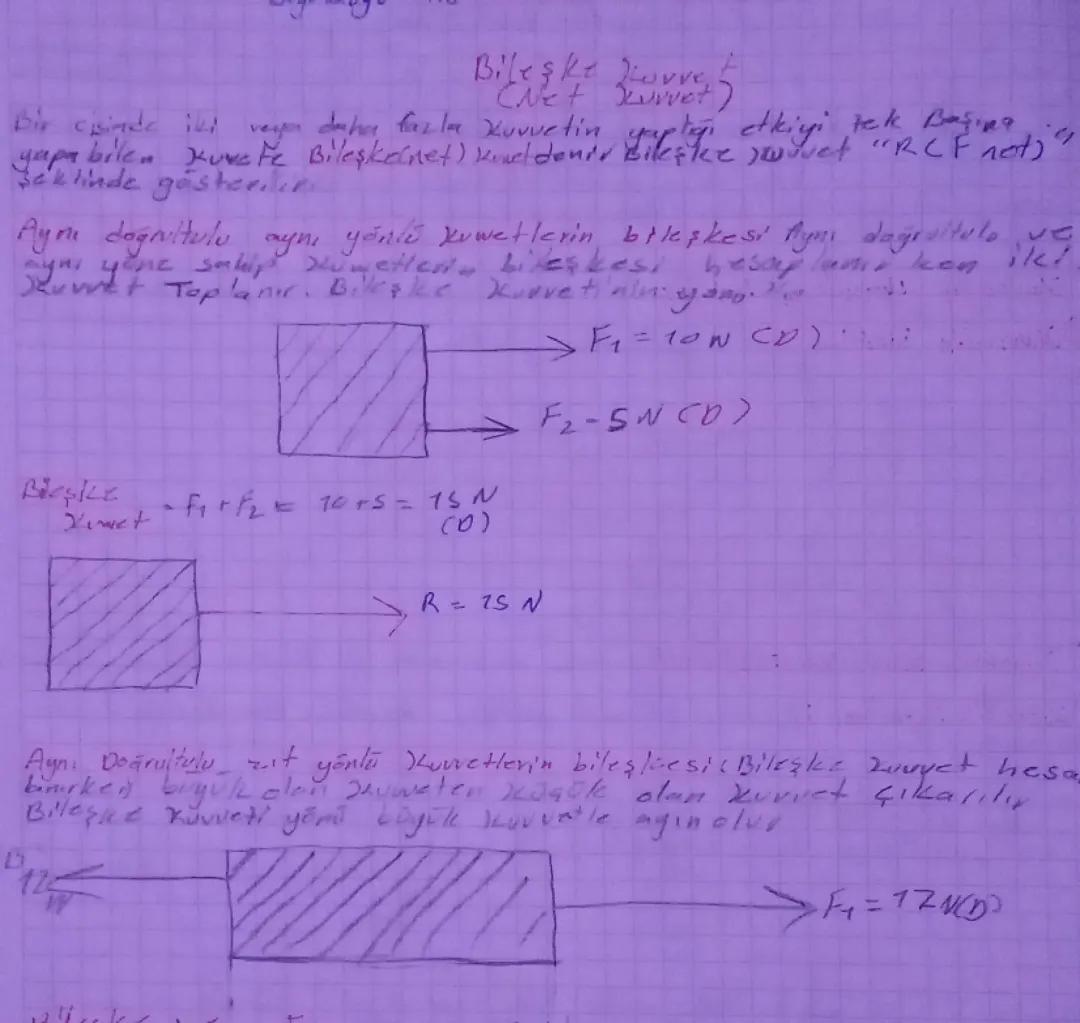 Bileşke Kuvvet
(Net Kuvvet)
Bir cisimde iki veya daha fazla Kuvvetin yaptığı etkiyi tek Başına
yapabilen Kuvete Bileşke(net) Kuvetdenir Bileşke Kuvvet "R(Fnet)"
Şeklinde gösterilir
Aynı doğrultulu aynı yönlü Kuvvetlerin bileşkesi Aynı doğrultulu ve
aynı yöne sahip Kuvvetlerin bileşkesi hesaplanırken iki
Kuvvet Toplanır. Bileşke Kuvvetinin yönü
F1 = 10 N (D)
F2 - 5 N (D)
Bileşke
Kuvvet = F1 + F2 = 10+5 = 15 N
(D)
R = 15 N
Aynı Doğrultulu zıt yönlü Kuvvetlerin bileşkesi (Bileşke Kuvvet hesa
büyük olan Kuvvetten Küçük olan Kuvvet Çıkarılır
Bileşke Kuvveti yönü büyük Kuvvetle aynı olur
12
N
F1 = 12 N(D)